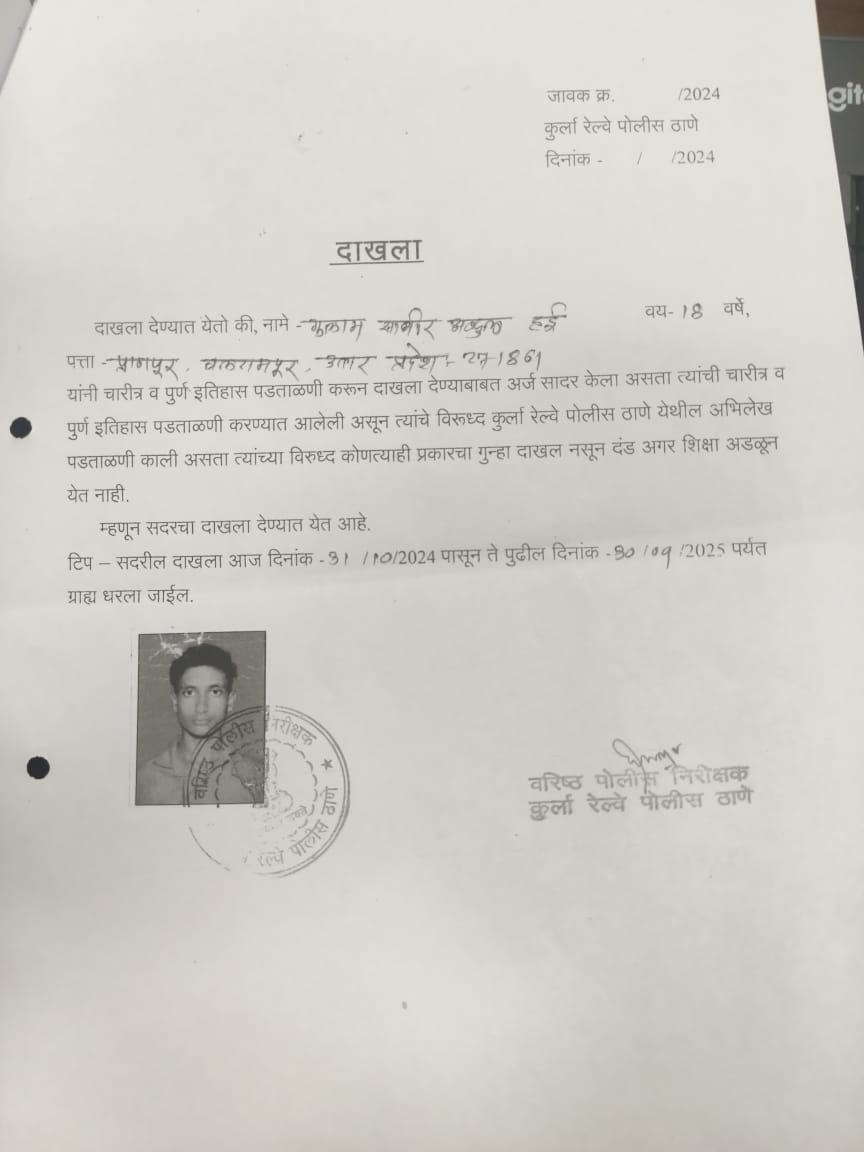 जावक क्र. /2024
कुर्ला रेल्वे पोलीस ठाणे
दिनांक - / /2024
दाखला
दाखला देण्यात येतो की, नामे - गुलाम अब्दुल हई वय- 18 वर्षे,
पत्ता - बलरामपूर, उत्तर प्रदेश - 271861
यांनी चारीत्र व पुर्ण इतिहास पडताळणी करून दाखला देण्याबाबत अर्ज सादर केला असता त्यांची चारीत्र व
पुर्ण इतिहास पडताळणी करण्यात आलेली असून त्यांचे विरूध्द कुर्ला रेल्वे पोलीस ठाणे येथील अभिलेख
पडताळणी काली असता त्यांच्या विरुध्द कोणत्याही प्रकारचा गुन्हा दाखल नसून दंड अगर शिक्षा अडळून
येत नाही.
म्हणून सदरचा दाखला देण्यात येत आहे.
टिप – सदरील दाखला आज दिनांक - 31 /10/2024 पासून ते पुढील दिनांक - 30 /09 /2025 पर्यत
ग्राह्य धरला जाईल.
वरिष्ठ पोलीस निरीक्षक
रेल्वे पोलीस ठाणे
वरिष्ठ पोलीस निरीक्षक
कुर्ला रेल्वे पोलीस ठाणे